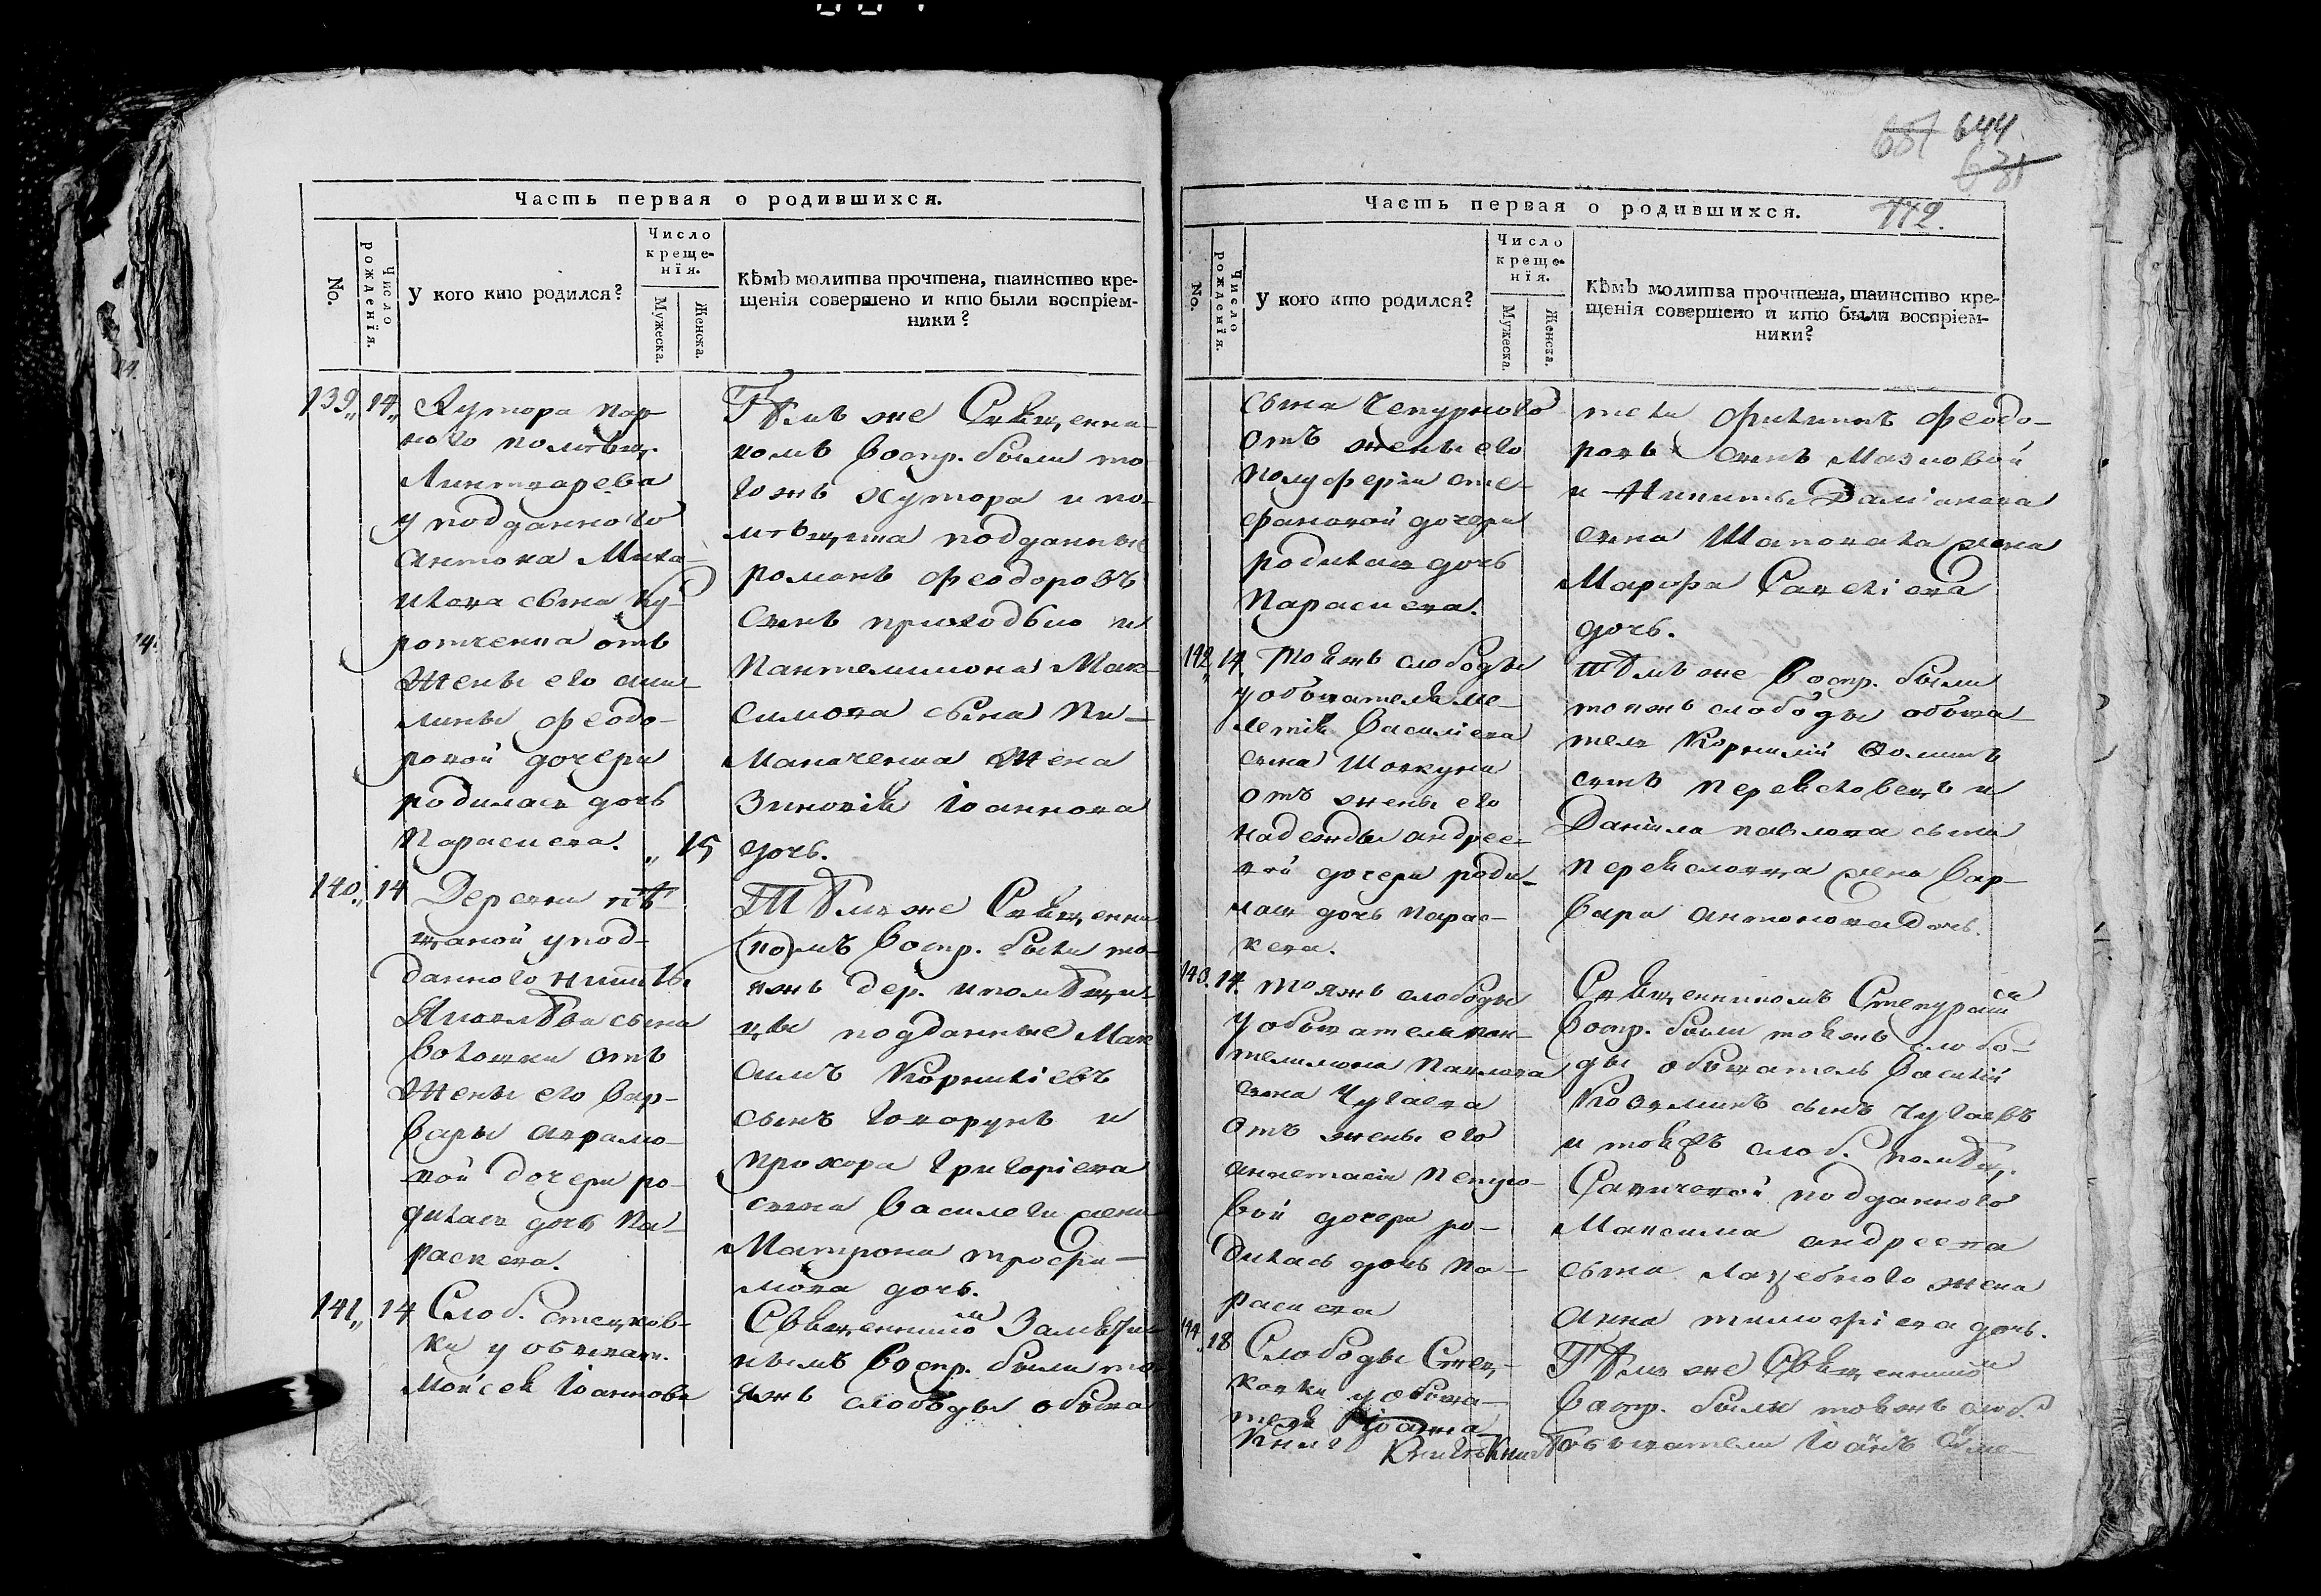 Часть первая о родившихся.
No.
Число рожденїя.
У кого кто родился?
Число
креще-
нїя.
Мужеска.
Женска.
Кѣмъ молитва прочтена, таинство кре-
щенія совершено и кто были воспріем-
ники?
139 14 Хутора
помѣщ.
Линтварева
у подданного
Антона Миха-
илова сына Ку-
ротченка отъ
жены его
Феодо-
ровой дочери
родилась дочь
Параскева. " 15
Тѣмъ же Священни-
комъ воспр. были то-
гожъ хутора и по-
мѣщика подданные
Романъ Феодоровъ
сынъ Приходько и
Пантелимона Мак-
симова сына
жена
Зиновія Іоаннова
дочь.
140 14 Деревни пѣ-
щаной у под-
данного Никиты
Яковлѣва сына
Волошки отъ
жены его Вар-
вары Аврамо-
вой дочери ро-
дилась дочь Па-
раскева.
Тѣмъ же Священни-
комъ воспр. были то-
яжъ дер. и помѣщи-
цы подданные Мак
симъ Корниліевъ
сынъ Говорунъ и
Прохора Григоріева
сына жена
Матрона Трофи-
мова дочь.
141 14 Слоб. Стецков-
ки у обыват.
Мойсея Іоаннова
Священником
воспр. были то
яжъ слободы обыва
687 644
631
112.
Часть первая о родившихся.
No.
Число рожденїя.
У кого кто родился?
Число
креще-
нїя.
Мужеска.
Женска.
Кѣмъ молитва прочтена, таинство кре-
щенія совершено и кто были воспріем-
ники?
сына Чепурного
отъ жены его
Сте-
фановой дочери
родилась дочь
Параскева.
тели Филиппъ Феодо-
ровъ сынъ
и Никиты Даміанова
сына Шаповала жена
Марфа Савеліева
дочь.
142 14. Тояжъ слободы
у обывателя Ме-
летія Василіева
сына Шовкуна
отъ жены его
Надежды Андрее-
вой дочери роди-
лась дочь Парас-
кева.
Тѣмъ же воспр. были
тояжъ слободы обыва-
тель Корнилій
сынъ Переясловецъ и
Даніила Павлова сына
Переясловца жена Вар-
вара Антонова дочь.
143. 14. Тояжъ слободы
у обывателя Пан-
телимона Павлова
сына Чугаева
отъ жены его
Анастасіи Петро-
вой дочери ро-
дилась дочь Па-
раскева
Священникомъ
воспр. были тояжъ слобо-
ды обыватель Василій
Козминъ сынъ Чугаевъ
и тояжъ слоб. помѣщ.
Савичевой подданного
Максима Андреева
сына Лазебного жена
Анна Тимофіева дочь.
144 18 Слободы Стец-
ковки у обыва-
теля Іоанна
Тѣмъ же Священником
воспр. были тояжъ слоб.
обыватели Іоаннъ